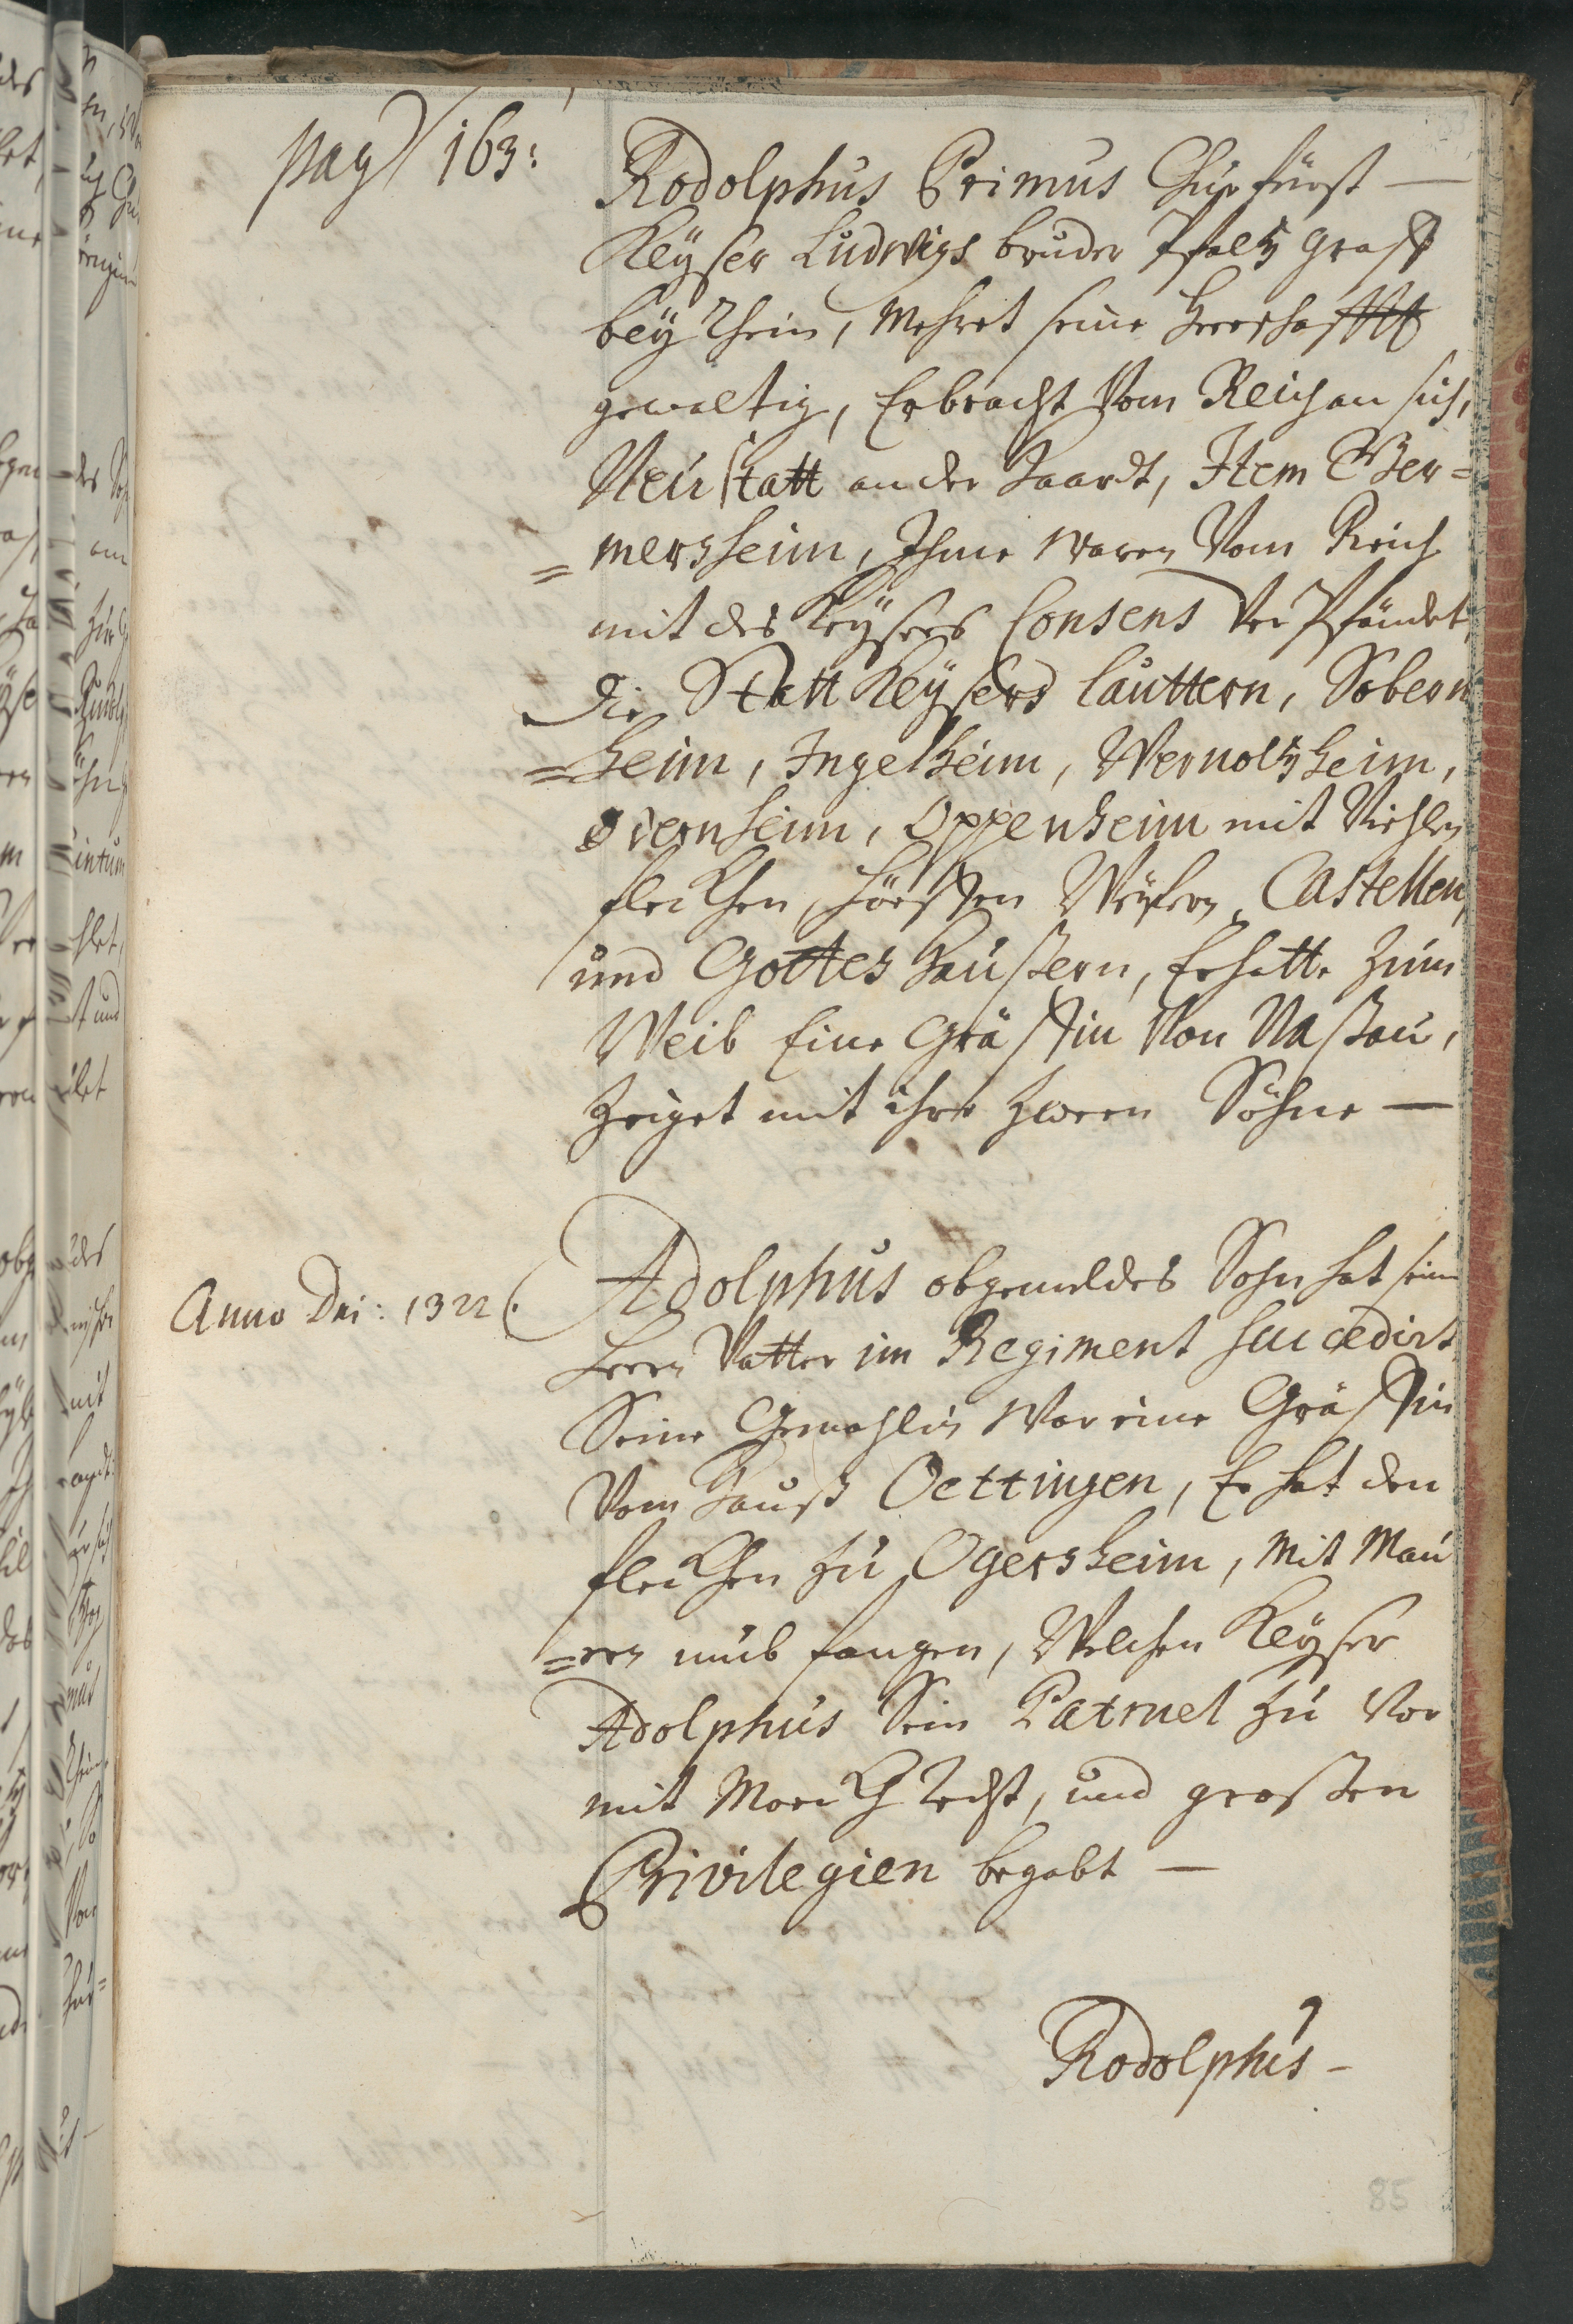 pag 163:
Rodolphus Primus Churfürst —
Keÿser Ludwigs bruder Pfaltz graff
beÿ Rhein, Mehret seine Herrschafft
gewaltig, Erbracht Vom Reich an sich,
Neustatt an der Haardt, Item Ger=
=mersheim, Ihme waren Vom Reich
mit des Keÿsers Consens Ver Pfändet
die Statt Keÿsers lauttern, Sobern
=heim, Ingelheim, Wernoltzheim,
Odernheim, Oppenheim mit Viehlen
fleckhen, Dörffern Weÿhern, Castellen,
und Gottes haußern, Er hatte zum
Weib Eine Gräffin Von Naßau,
Zeiget mit ihre zween Söhne —
Anno Dni: 1322.
Adolphus obgemeldes Sohn hat seim
Herrn Vatter im Regiment succedirt
Seine Gemahlin War eine Gräffin
Vom Hauß Oettingen, Er hat den
fleckhen zu Ogersheim, Mit Mau
=ren umb fangen, Welchen Keÿser
Adolphus Sein Patruel zu Vor
mit Marckh Recht, und großen
Privilegien begabt —
Rodolphus —
85